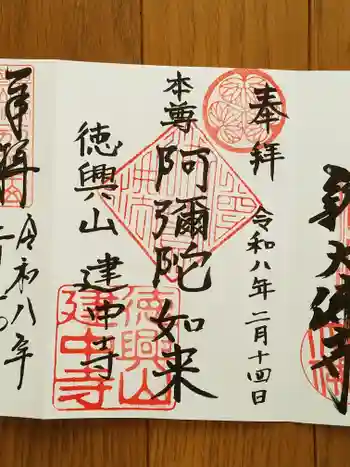 奉拝
令和八年二月十四日
本尊
阿彌陀如来
徳興山 建中寺
徳興山
建中寺
奉拝
令和八年